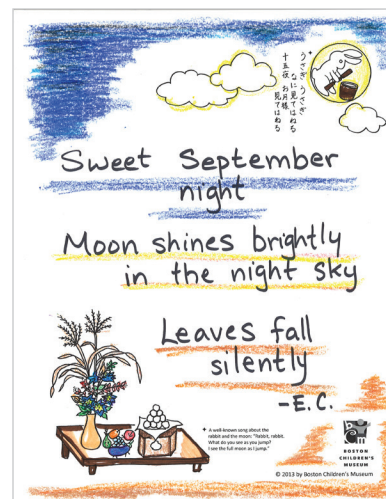 ✦
うさぎ うさぎ
なに見てはねる
十五夜 お月様
見てはねる
Sweet September
night
Moon shines brightly
in the night sky
Leaves fall
silently
-E.C.
✦ A well-known song about the
rabbit and the moon: "Rabbit, rabbit.
What do you see as you jump?
I see the full moon as I jump."
BOSTON
CHILDREN'S
MUSEUM
© 2013 by Boston Children's Museum